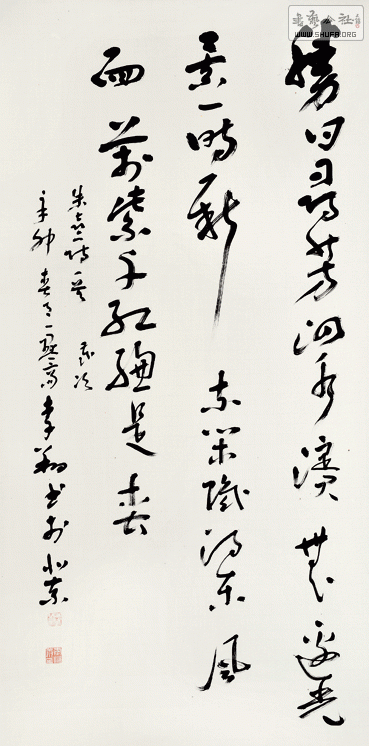 勝日尋芳泗水濱無邊光
景一時新等閒識得東風
面萬紫千紅總是春
朱熹詩一首
辛卯春月
李翔書於北京
WWW.SHUFA.ORG